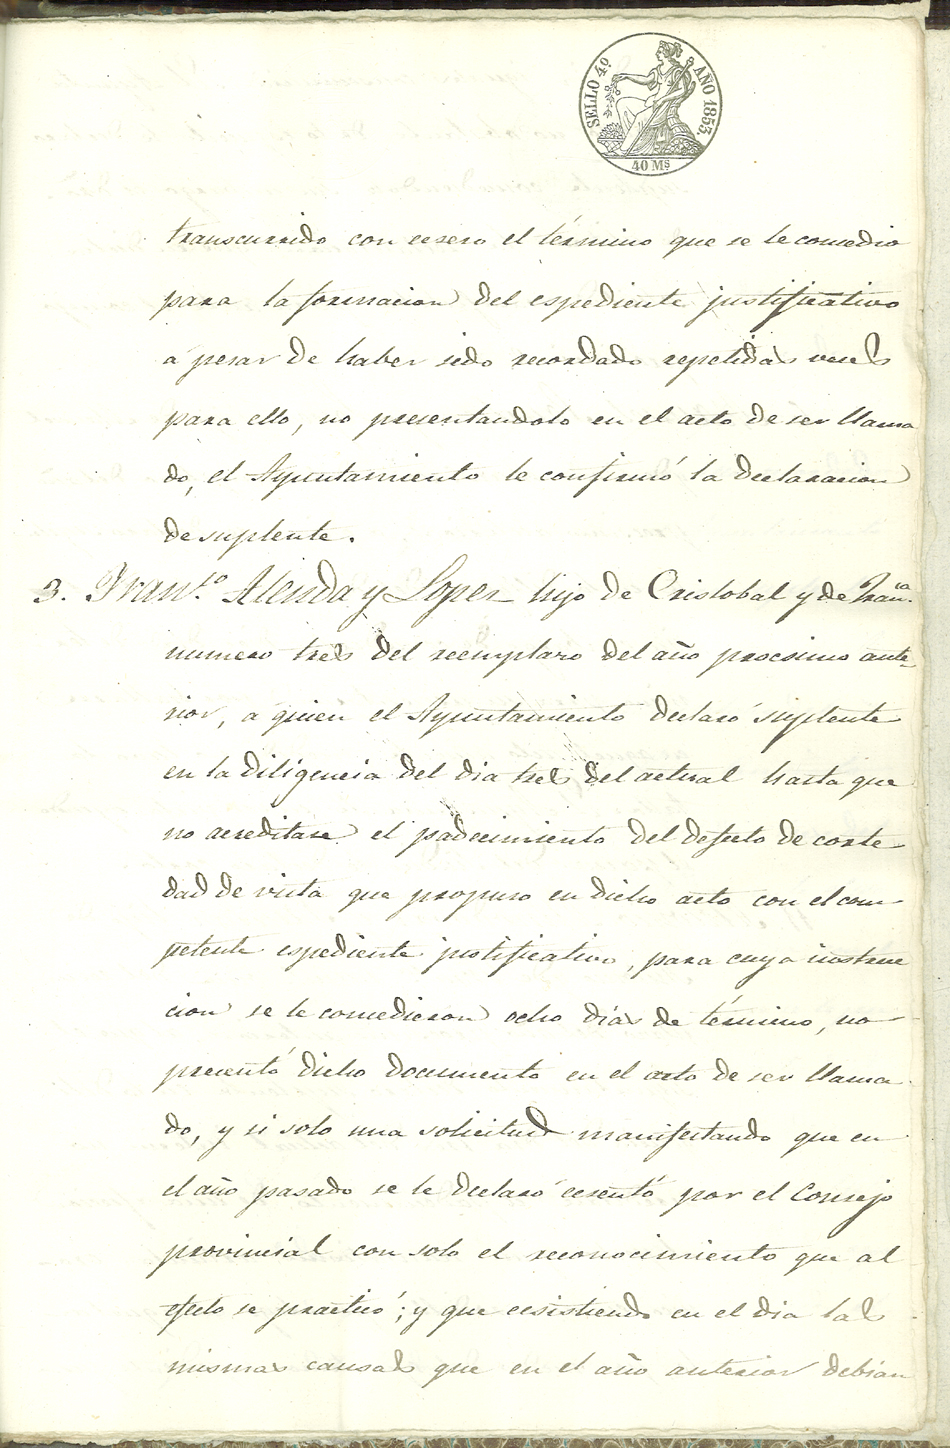 SELLO 4º AÑO 1853.
40 Ms
transcurrido con ecseso el término que se le concedio
para la formacion del espediente justificativo
á pesar de haber sido recordado repetidas veces
para ello, no presentandolo en el acto de ser llama
do, el Ayuntamiento le confirmó la declaracion
de suplente.
3. Fran.co Alenda y Lopez hijo de Cristobal y de Fran.ca
numero tres del reemplazo del año procsimo ante-
rior, a quien el Ayuntamiento declaró suplente
en la diligencia del dia tres del actual hasta que
no acreditase el padecimiento del defecto de corte-
dad de vista que propuso en dicho acto con el com-
petente espediente justificativo, para cuya instruc
cion se le concedieron ocho días de término, no
presentó dicho documento en el acto de ser llama
do, y si solo una solicitud manifestando que en
el año pasado se le declaró ecsentó por el Consejo
provincial con solo el reconocimiento que al
efecto se practicó; y que ecsistiendo en el dia las
mismas causas que en el año anterior debian